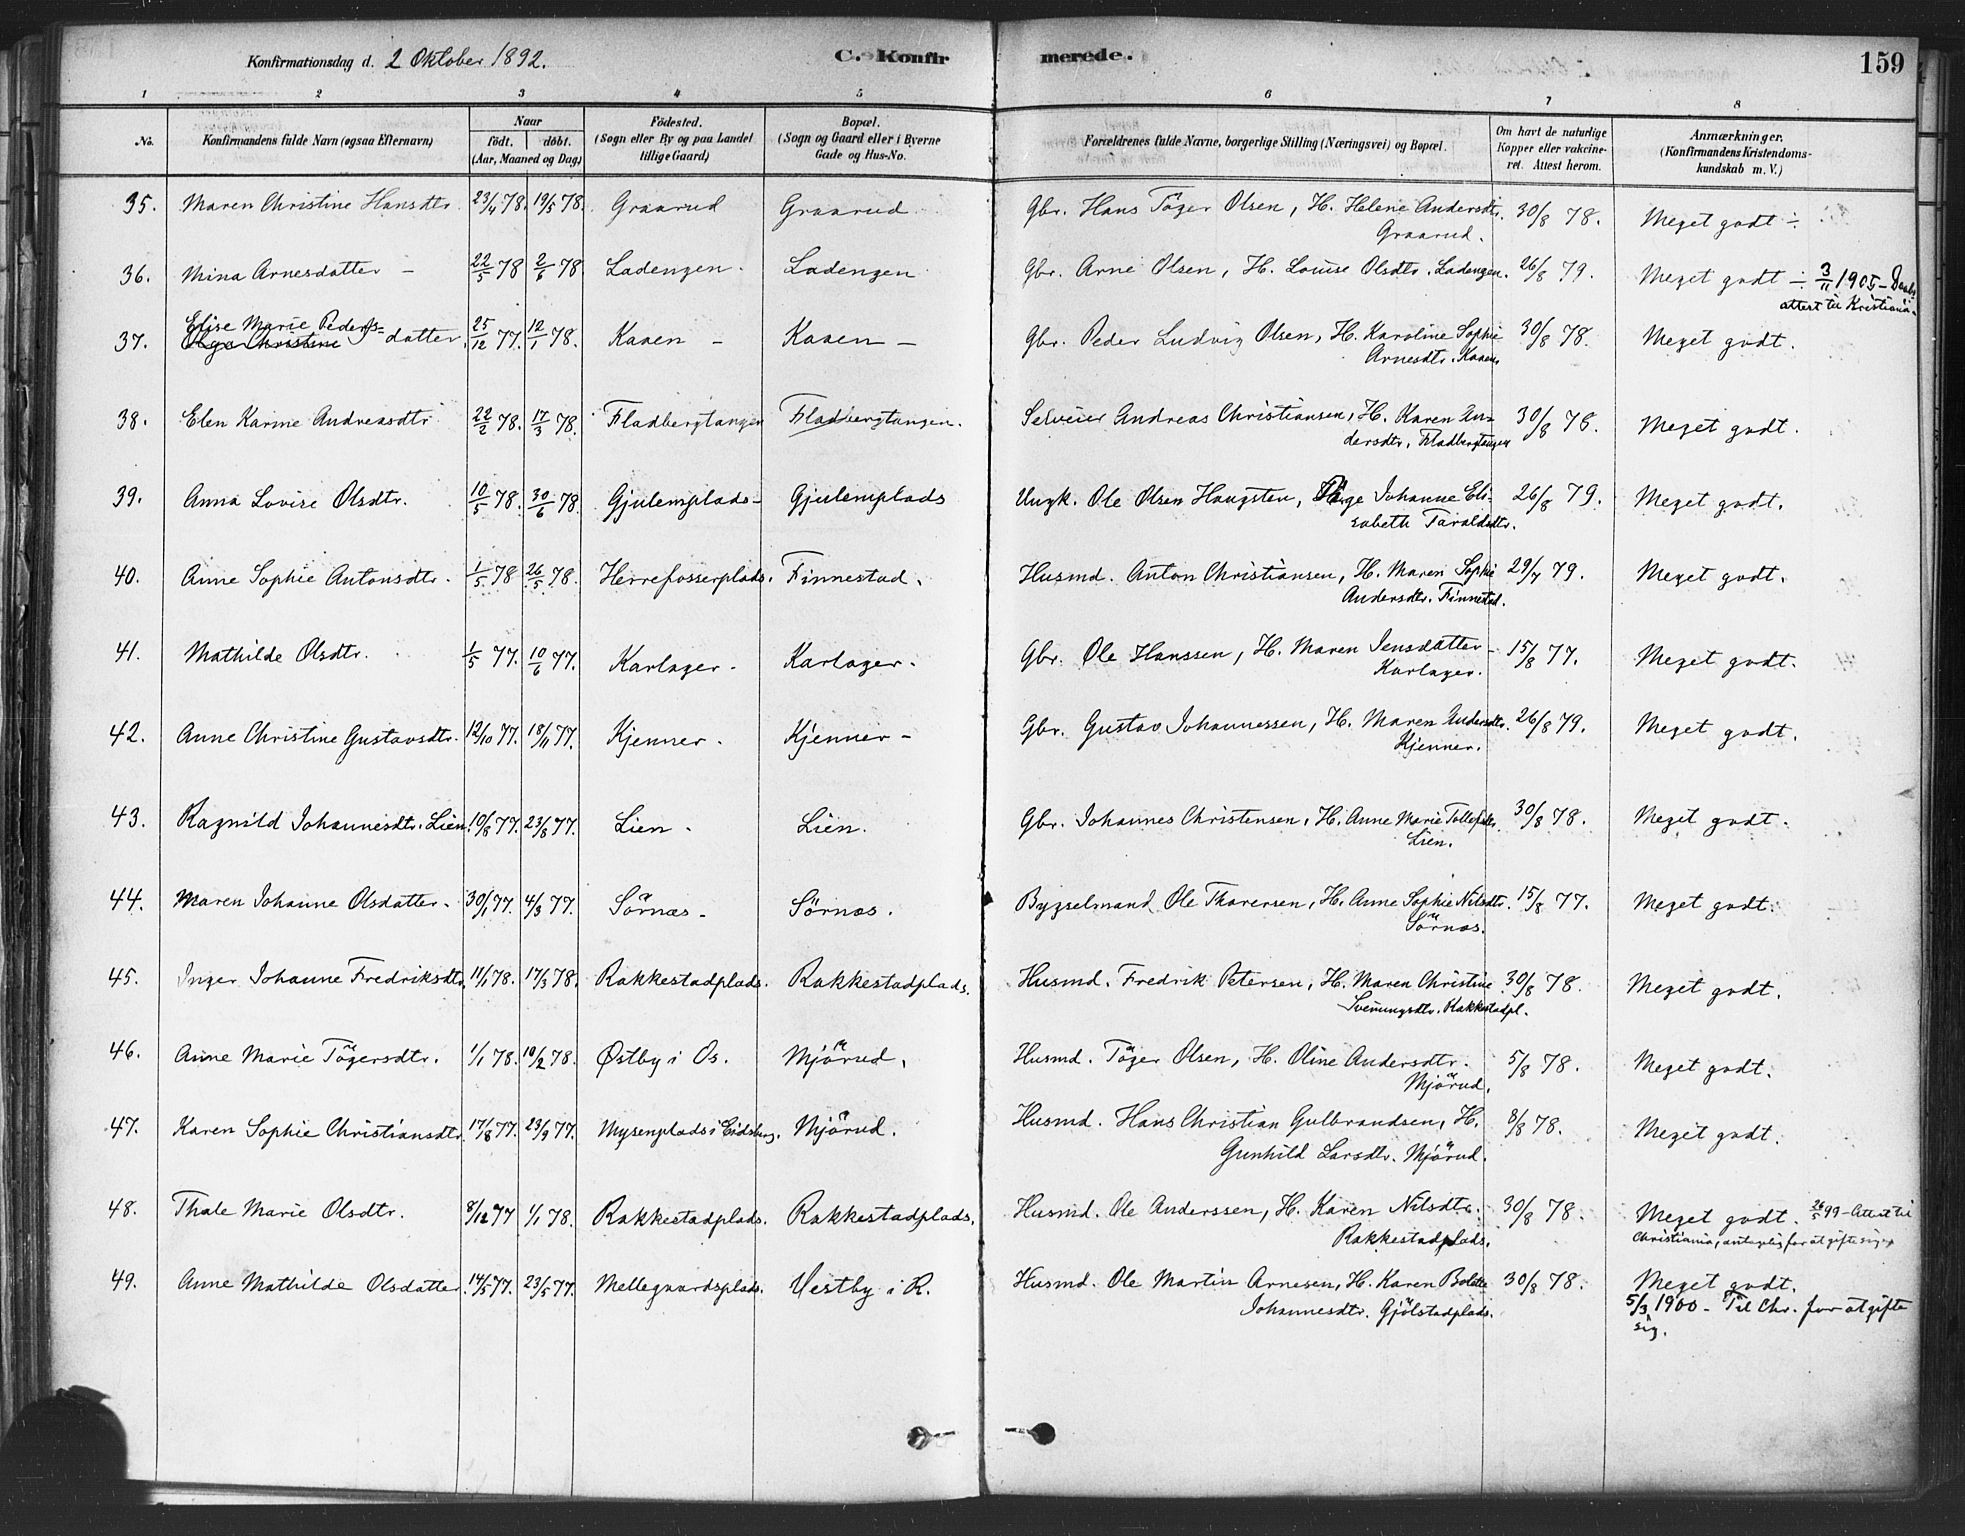 Konfirmationsdag d. 2 Oktober 1892. C. Konfirmerede. 159
1 2 3 4 5 6 7 8
No. Konfirmandens fulde Navn (ogsaa Efternavn) Naar født. døbt. (Aar, Maaned og Dag) Fødested. (Sogn eller By og paa Landet tillige Gaard) Bopæl. (Sogn og Gaard eller i Byerne Gade og Hus-No. Forældrenes fulde Navne, borgerlige Stilling (Næringsvei) og Bopæl. Om havt de naturlige Kopper eller vakcineret. Attest herom. Anmærkninger. (Konfirmandens Kristendomskundskab m. V.)
35. Maren Christine Hansdtr. 23/4 78. 19/5 78. Graarud Graarud Gbr. Hans Töger Olsen, H. Helene Andersdtr. 30/8 78. Meget godt ÷
Graarud.
36. Mina Arnesdatter – 22/5 78 2/6 78. Ladengen. Ladengen Gbr. Arne Olsen, H. Louise Olsdtr. Ladengen. 26/8 79. Meget godt ÷ 3/11 1905 – Daabsattest til Kristiania.
37. Elise Marie Peders=
Olga Christine datter. 25/12 77. 12/1 78. Kaaen – Kaaen – Gbr. Peder Ludvig Olsen, H. Karoline Sophie 30/8 78. Meget godt.
Arnesdtr. Kaaen
38. Elen Karine Andreasdtr 22/2 78. 17/3 78. Fladbergtangen Fladbergtangen. Selveier Andreas Christiansen, H. Karen An- 30/8 78. Meget godt.
dersdtr. Fladbergtangen
39. Anna Lovise Olsdtr. 10/5 78. 30/6 78. Gjulemplads – Gjulemplads Ungk. Ole Olsen Haugsten, Pige Johanne Eli- 26/8 79. Meget godt.
sabeth Taraldsdtr.
40. Anne Sophie Antonsdtr. 1/5 78 26/5 78. Herrefosserplads. Finnestad. Husmd. Anton Christiansen, H. Maren Sophie 29/7 79. Meget godt.
Andersdtr. Finnestad.
41. Mathilde Olsdtr. 1/5 77. 10/6 77. Karlager – Karlager. Gbr. Ole Hanssen, H. Maren Jensdatter – 15/8 77. Meget godt.
Karlager.
42. Anne Christine Gustavsdtr. 12/10 77. 18/11 77. Kjenner. Kjenner – Gbr. Gustav Johannessen, H. Maren Andersdtr. 26/8 79. Meget godt.
Kjenner.
43. Ragnild Johannesdtr. Lien. 10/8 77. 23/8 77. Lien. Lien. Gbr. Johannes Christensen, H. Anne Marie Tollefsdtr. 30/8 78. Meget godt.
Lien.
44. Maren Johanne Olsdatter – 30/1 77. 4/3 77. Sörnæs – Sörnæs. Bygselmand Ole Thorersen, H. Anne Sophie Nilsdtr. 15/8 77. Meget godt.
Sörnæs.
45. Inger Johanne Fredriksdtr. 11/1 78. 17/3 78. Rakkestadplads. Rakkestadplads. Husmd. Fredrik Petersen, H. Maren Christine 30/8 78. Meget godt.
Svenungsdtr. Rakkestadpl.
46. Anne Marie Tögersdtr. 1/1 78. 10/2 78. Østby i Os. Mjörud. Husmd. Töger Olsen, H. Oline Andersdtr. 5/8 78. Meget godt.
Mjörud.
47. Karen Sophie Christiansdtr. 17/8 77. 23/9 77. Mysenplads i Eidsberg. Mjörud. Husmd. Hans Christian Gulbrandsen, H. 8/8 78. Meget godt.
Gunhild Larsdtr. Mjörud.
48. Thale Marie Olsdtr. 8/12 77 1/1 78. Rakkestadplads. Rakkestadplads. Husmd. Ole Anderssen, H. Karen Nilsdtr. 30/8 78. Meget godt. 26/5 99 – Attest til
Rakkestadplads. Christiania, antagelig for at gifte sig
49. Anne Mathilde Olsdatter. 14/5 77. 23/5 77. Mellegaardsplads. Vestby i R. Husmd. Ole Martin Arnesen, H. Karen Bolette 30/8 78. Meget godt.
Johannesdtr. Gjölstadplads. 5/3 1900 – Til Chr. for at gifte
sig.